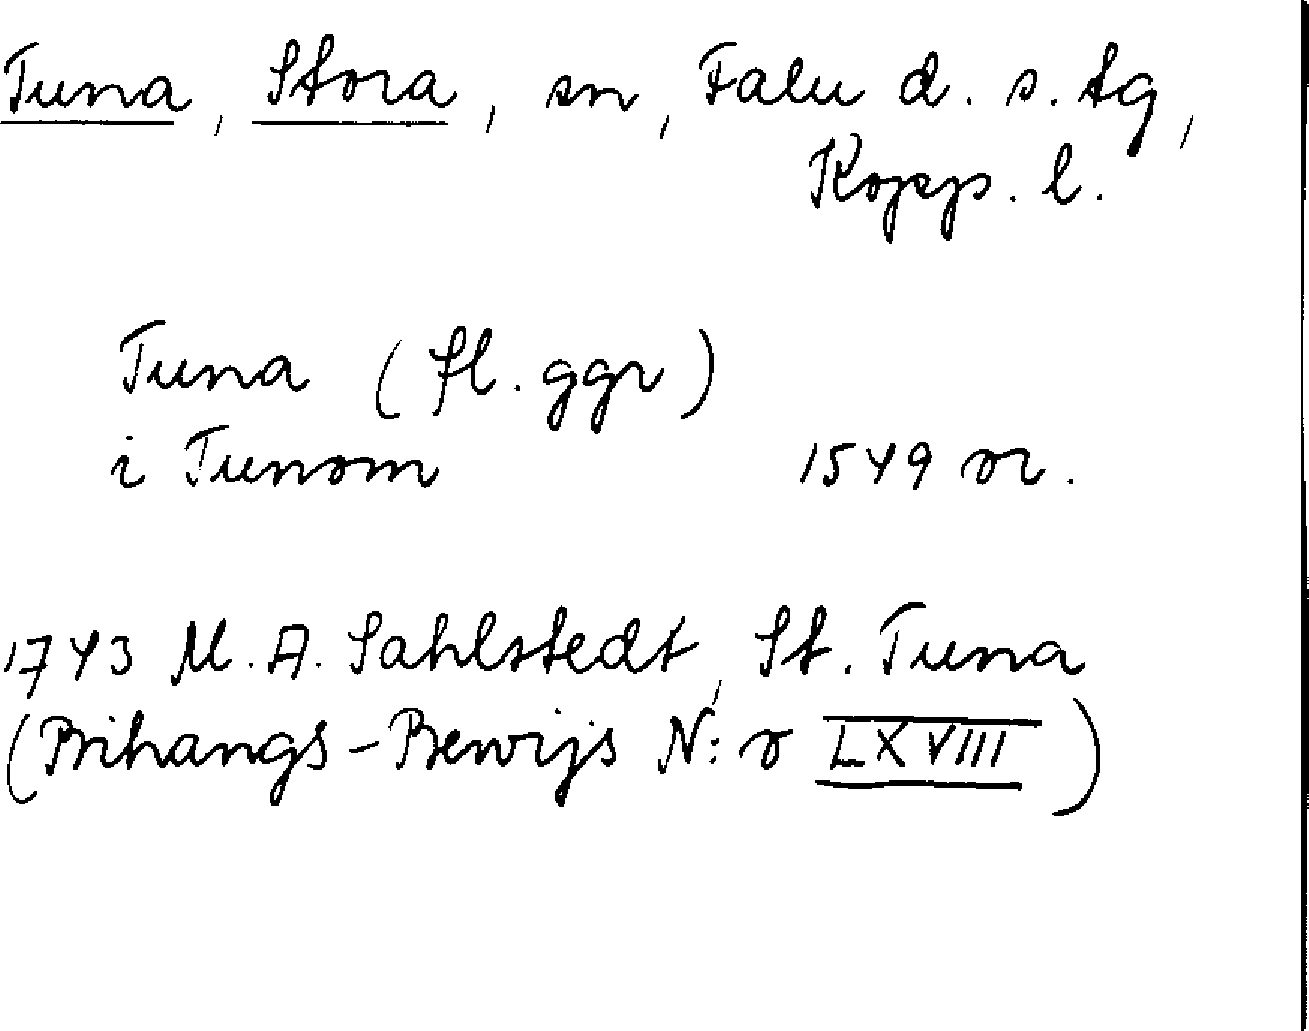 Tuna, Stora, sn, Falu d. s. tg,
Kopp. l.
Tuna (fl. ggr)
i Tunom 1549 or.
1743 M. A. Sahlstedt, St. Tuna
(Bihangs-Bewijs N:o LXVIII)